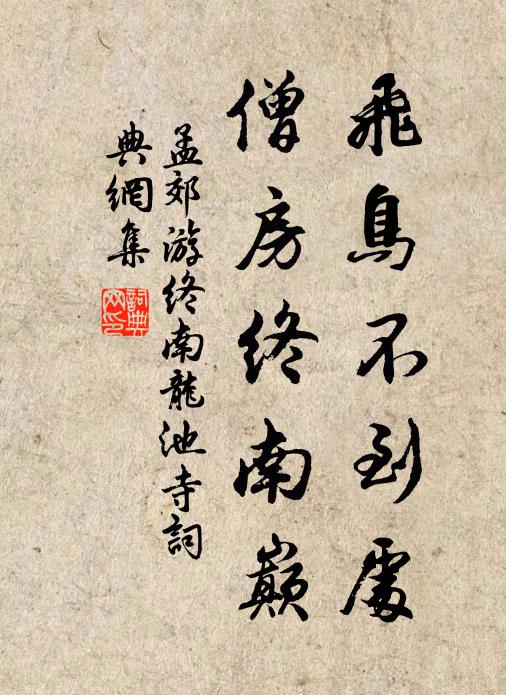 飛鳥不到處
僧房終南巔
孟郊游終南龍池寺詞
典網集
詞典
网印